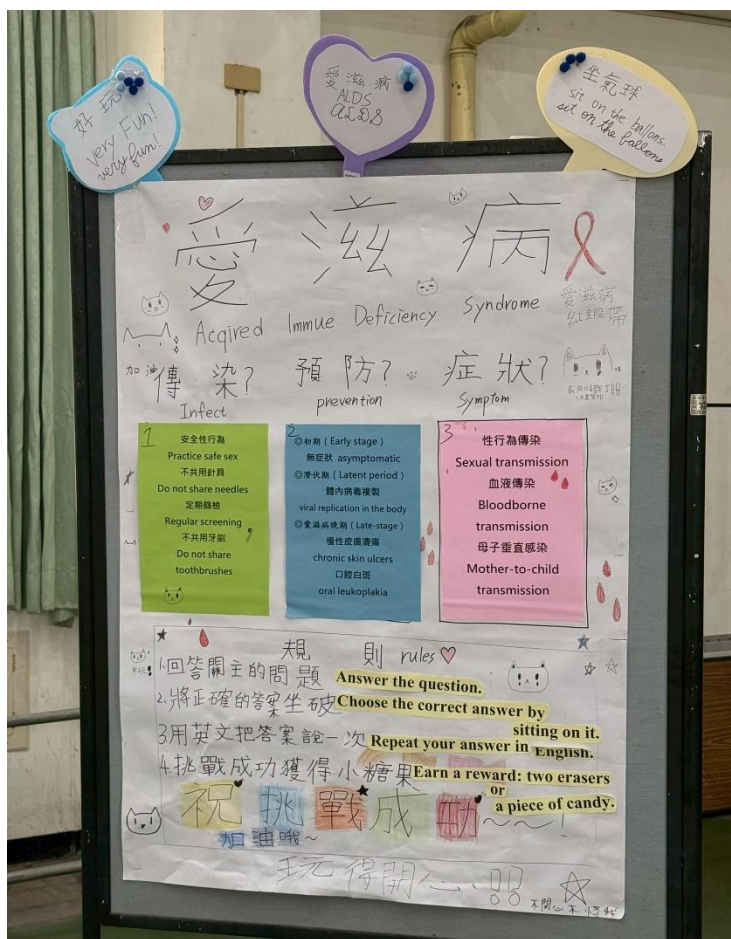 好玩
very Fun!
very fun!
愛滋病
ALDS
ALDS
坐氣球
sit on the ballons.
sit on the ballons
愛滋病
Acqired Immue Deficiency Syndrome
愛滋病
紅絲帶
加油
傳染? 預防? 症狀?
Infect prevention Symptom
1
安全性行為
Practice safe sex
不共用針具
Do not share needles
定期篩檢
Regular screening
不共用牙刷
Do not share
toothbrushes
2
◎初期(Early stage)
無症狀 asymptomatic
◎潛伏期(Latent period)
體內病毒複製
viral replication in the body
◎愛滋病晚期(Late-stage)
慢性皮膚潰瘍
chronic skin ulcers
口腔白斑
oral leukoplakia
3
性行為傳染
Sexual transmission
血液傳染
Bloodborne
transmission
母子垂直感染
Mother-to-child
transmission
規則 rules
1.回答關主的問題
Answer the question.
2.將正確的答案坐破
Choose the correct answer by
sitting on it.
3用英文把答案說一次
Repeat your answer in English.
4.挑戰成功獲得小糖果
Earn a reward: two erasers
or
a piece of candy.
祝挑戰成功~~!
加油哦~
玩得開心!!
不開心不怪我